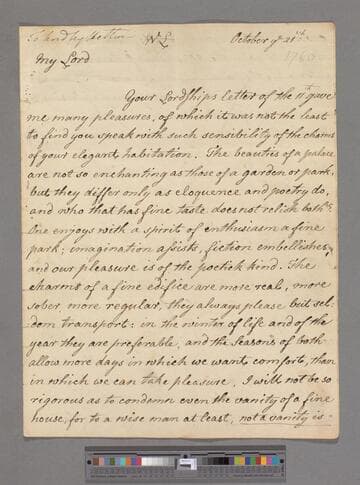 To Lord Lyttelton W L October ye 21st
1760
My Lord
Your Lordships letter of the 11th gave
me many pleasures, of which it was not the least
to find you speak with such sensibility of the charms
of your elegant habitation. The beauties of a palace
are not so enchanting as those of a garden or park,
but they differ only as eloquence and poetry do,
and who that has fine taste does not relish both?
One enjoys with a spirit of enthusiasm a fine
park; imagination assists, fiction embellishes,
and our pleasure is of the poetick kind. The
charms of a fine edifice are more real, more
sober, more regular, they always please but sel-
dom transport: in the winter of life and of the
year they are preferable, and the seasons of both
allow more days in which we want comforts, than
in which we can take pleasure. I will not be so
rigorous as to condemn even the vanity of a fine
house, for to a wise man at least, not a vanity is-